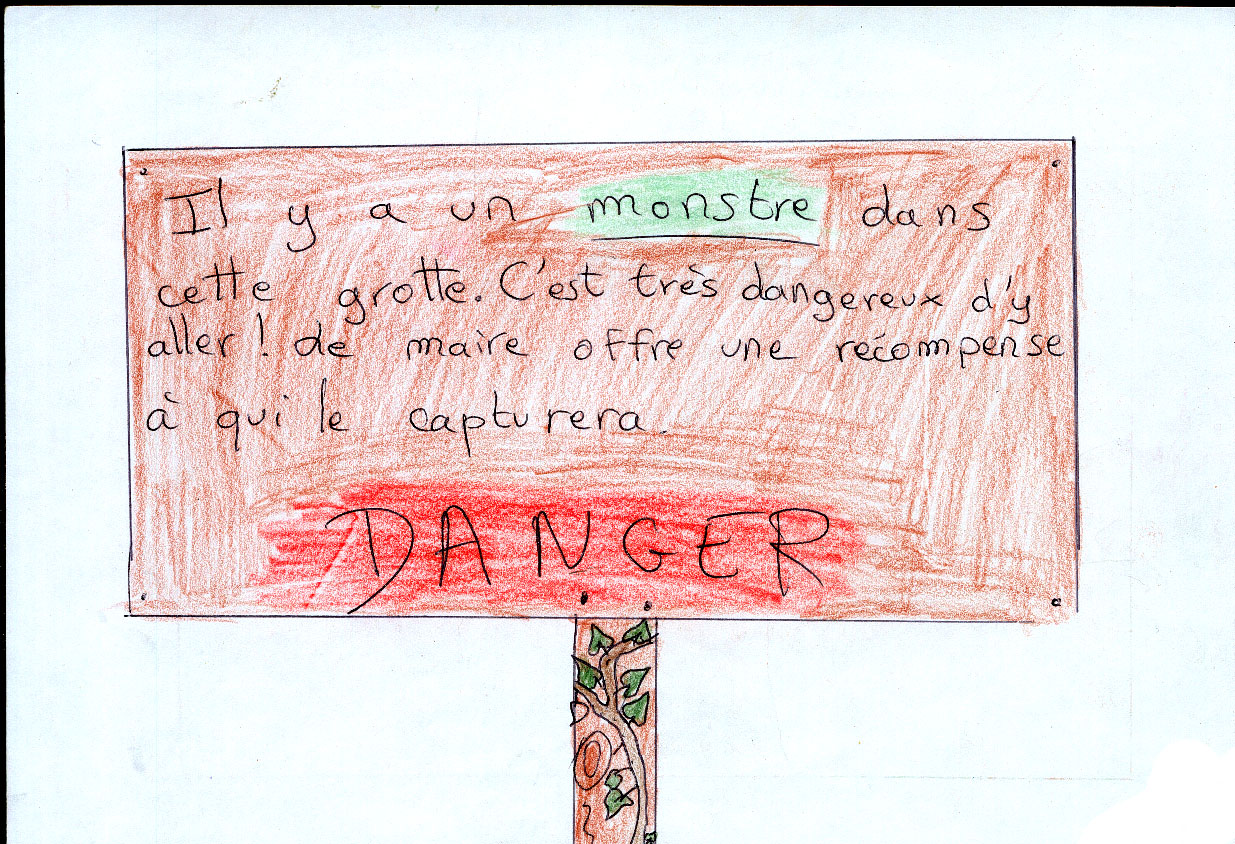 Il y a un monstre dans
cette grotte. C'est très dangereux d'y
aller ! de maire offre une récompense
à qui le capturera.
DANGER